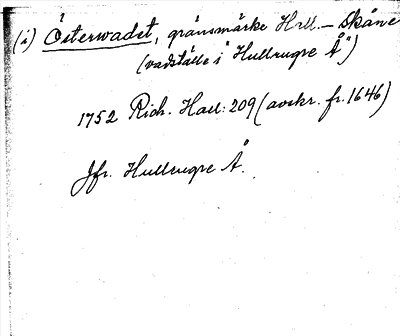 (i) Österwadet, gränsmärke Hall. – Skåne
(vadställe i Hullrugre Å)
1752 Rich. Hall: 209 (avskr. fr. 1646)
Jfr. Hullrugre Å.